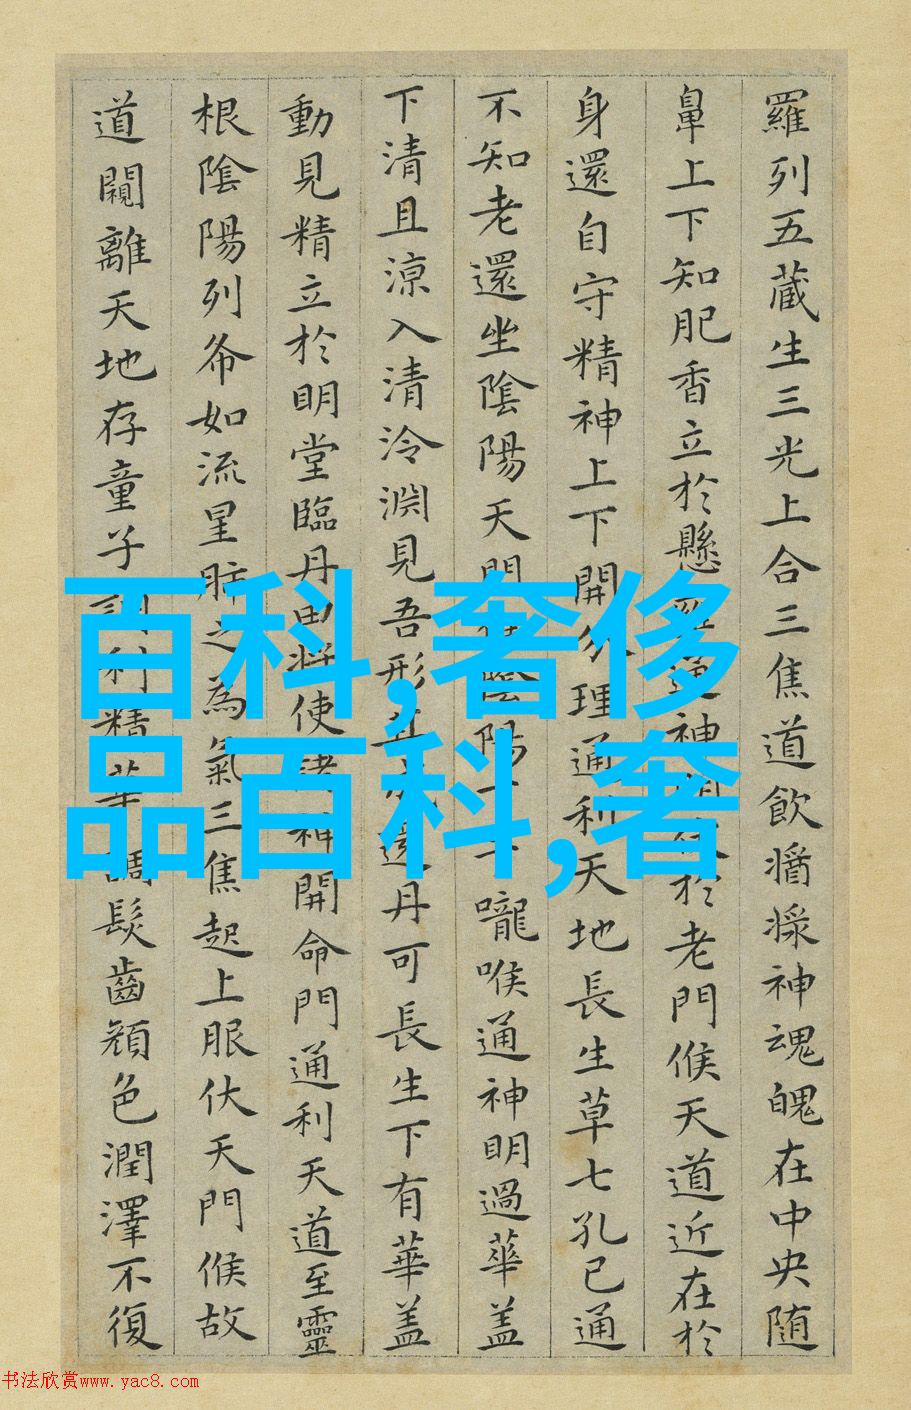 羅列五藏生三光上合三焦道飲醬漿神魂魄在中央随
鼻上下知肥香立於懸通神於老門候天道近在於
身還自守精神上下開分理通利天地長生草七孔已通
不知老還坐陰陽天門陰陽下嚨喉通神明過華盖
下清且涼入清泠渊見吾形還丹可長生下有華盖
動見精立於明堂臨丹田将使諸神開命門通利天道至靈
根陰陽列布如流星肺之為氣三焦起上服伏天門候故
道闚離天地存童子調利精華調髮齒顏色潤澤不復
百科,奢侈
品百科,奢
书法欣赏www.yac8.com